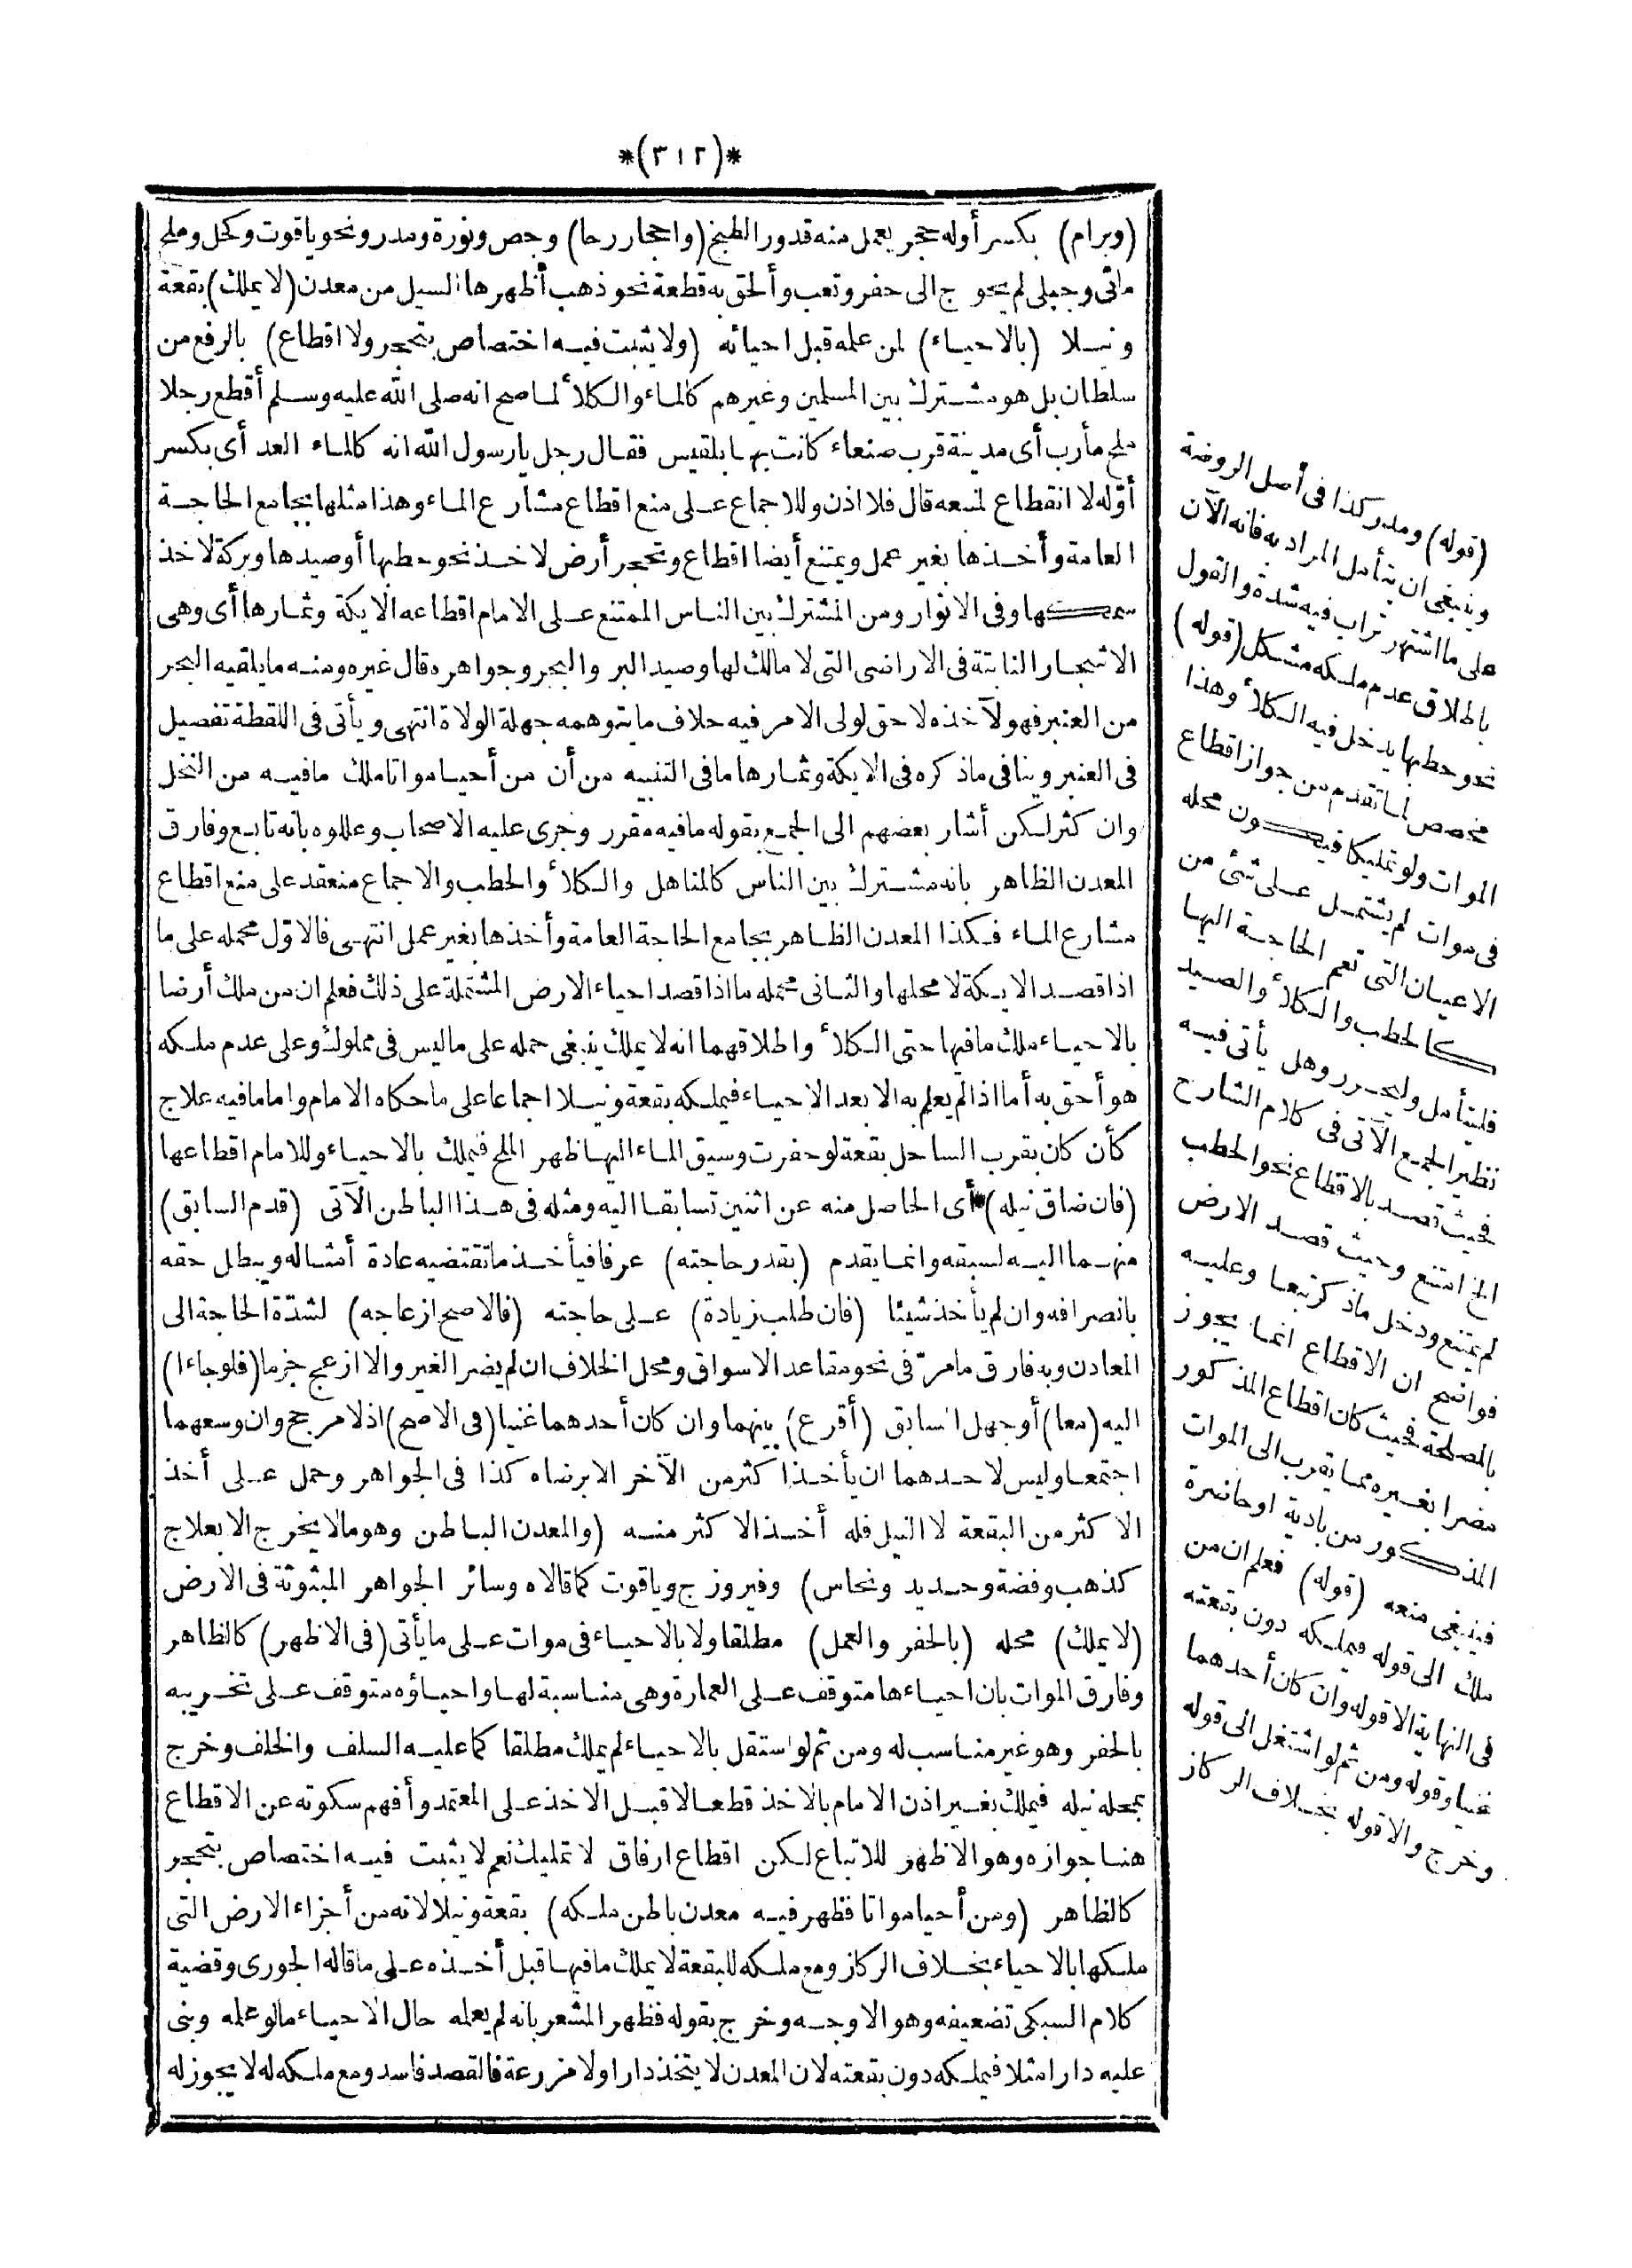 *(٣١٢)*
(وبرام) بكسر أوله حجر يعمل منه قدور الطبخ (واحجار رحا) وجص ونورة ومدر ونحو ياقوت وكحل وملح
مائى وجبلى لم يحوج الى حفر وتعب وألحق به قطعة نحو ذهب أظهرها السيل من معدن (لا يملك) بقعة
ونيلا (بالاحياء) لمن علمه قبل احيائه (ولا يثبت فيه اختصاص بتحجر ولا اقطاع) بالرفع من
سلطان بل هو مشترك بين المسلمين وغيرهم كالماء والكلأ لما صح انه صلى الله عليه وسلم أقطع رجلا
ملح مأرب أى مدينة قرب صنعاء كانت بها بلقيس فقال رجل يارسول الله انه كالماء العد أى بكسر
أوّله لا انقطاع لنبعه قال فلا اذن وللاجماع على منع اقطاع مشارع الماء وهذا مثلها بجامع الحاجة
العامة وأخذها بغير عمل ويمتنع أيضا اقطاع وتحجر أرض لاخذ نحو حطبها أو صيدها وبركة لاخذ
سمكها وفى الانوار ومن المشترك بين الناس الممتنع على الامام اقطاعه الايكة وثمارها أى وهى
الاشجار النابتة فى الاراضى التى لا مالك لها وصيد البر والبحر وجواهره قال غيره ومنه ما يلقيه البحر
من العنبر فهو لآخذه لا حق لولى الامر فيه خلاف ما يتوهمه جهلة الولاة انتهى ويأتى فى اللقطة تفصيل
فى العنبر وينافى ماذكره فى الايكة وثمارها ما فى التنبيه من أن من أحيا مواتا ملك ما فيه من النخل
وان كثر لكن أشار بعضهم الى الجمع بقوله ما فيه مقرر وجرى عليه الاصحاب وعللوه بانه تابع وفارق
المعدن الظاهر بانه مشترك بين الناس كالمناهل والكلأ والحطب والاجماع منعقد على منع اقطاع
مشارع الماء فكذا المعدن الظاهر بجامع الحاجة العامة وأخذها بغير عمل انتهى فالاوّل محمله على ما
اذا قصد الايكة لا محلها والثانى محمله ما اذا قصد احياء الارض المشتملة على ذلك فعلم ان من ملك أرضا
بالاحياء ملك ما فيها حتى الكلأ واطلاقهما انه لا يملك ينبغى حمله على ما ليس فى مملوك وعلى عدم ملكه
هو أحق به أما اذا لم يعلم به الا بعد الاحياء فيملكه بقعة ونيلا اجماعا على ما حكاه الامام واما ما فيه علاج
كأن كان بقرب الساحل بقعة لو حفرت وسيق الماء اليها ظهر الملح فيملك بالاحياء وللامام اقطاعها
(فان ضاق نيله) أى الحاصل منه عن اثنين تسابقا اليه ومثله فى هذا الباطن الآتى (قدم السابق)
منهما اليه لسبقه وانما يقدم (بقدر حاجته) عرفا فيأخذ ما تقتضيه عادة أمثاله ويبطل حقه
بانصرافه وان لم يأخذ شيئا (فان طلب زيادة) على حاجته (فالاصح ازعاجه) لشدّة الحاجة الى
المعادن وبه فارق ما مرّ فى نحو مقاعد الاسواق ومحل الخلاف ان لم يضر الغير والا ازعج جزما (فلو جاءا)
اليه (معا) أو جهل السابق (أقرع) بينهما وان كان أحدهما غنيا (فى الاصح) اذ لا مرجح وان وسعهما
اجتمعا وليس لاحدهما ان يأخذ أكثر من الآخر الا برضاه كذا فى الجواهر وحمل على أخذ
الاكثر من البقعة لا النيل فله أخذ الاكثر منه (والمعدن الباطن وهو مالا يخرج الا بعلاج
كذهب وفضة وحديد ونحاس) وفيروزج وياقوت كما قالاه وسائر الجواهر المبثوثة فى الارض
(لا يملك) محله (بالحفر والعمل) مطلقا ولا بالاحياء فى موات على ما يأتى (فى الاظهر) كالظاهر
وفارق الموات بان احياءها متوقف على العمارة وهى مناسبة لها واحياؤه متوقف على تخريبه
بالحفر وهو غير مناسب له ومن ثم لو استقل بالاحياء لم يملك مطلقا كما عليه السلف والخلف وخرج
بمحله نيله فيملك بغير اذن الامام بالاخذ قطعا لا قبل الاخذ على المعتمد وأفهم سكوته عن الاقطاع
هنا جوازه وهو الاظهر للاتباع لكن اقطاع ارفاق لا تمليك نعم لا يثبت فيه اختصاص بتحجر
كالظاهر (ومن أحيا مواتا فظهر فيه معدن باطن ملكه) بقعة ونيلا لانه من أجزاء الارض التى
ملكها بالاحياء بخلاف الركاز ومع ملكه للبقعة لا يملك ما فيها قبل أخذه على ما قاله الجورى وقضية
كلام السبكى تضعيفه وهو الاوجه وخرج بقوله فظهر المشعر بانه لم يعلمه حال الاحياء ما لو علمه وبنى
عليه دارا مثلا فيملكه دون بقعته لان المعدن لا يتخذ دارا ولا مزرعة فالقصد فاسد ومع ملكه له لا يجوز له
(قوله) ومدر كذا فى أصل الروضة
وينبغى ان يتأمل المراد به فانه الآن
على ما اشتهر تراب فيه شدة والقول
باطلاق عدم ملكه مشكل (قوله)
نحو حطبها يدخل فيه الكلأ وهذا
مخصص لما تقدم من جواز اقطاع
الموات ولو تمليكا فيكون محله
فى موات لم يشتمل على شئ من
الاعيان التى تعم الحاجة اليها
كالحطب والكلأ والصيد
فليتأمل وليحرر وهل يأتى فيه
نظير الجمع الآتى فى كلام الشارح
فحيث قصد بالاقطاع نحو الحطب
الخ امتنع وحيث قصد الارض
لم يمتنع ودخل ماذكر تبعا وعليه
فواضح ان الاقطاع انما يجوز
بالمصلحة فحيث كان اقطاع المذكور
مضرا بغيره مما يقرب الى الموات
المذكور من بادية او حاضرة
فينبغى منعه (قوله) فعلم ان من
ملك الى قوله فيملكه دون بقعته
فى النهاية الا قوله وان كان أحدهما
غنيا وقوله ومن ثم لو اشتغل الى قوله
وخرج والا قوله بخلاف الركاز